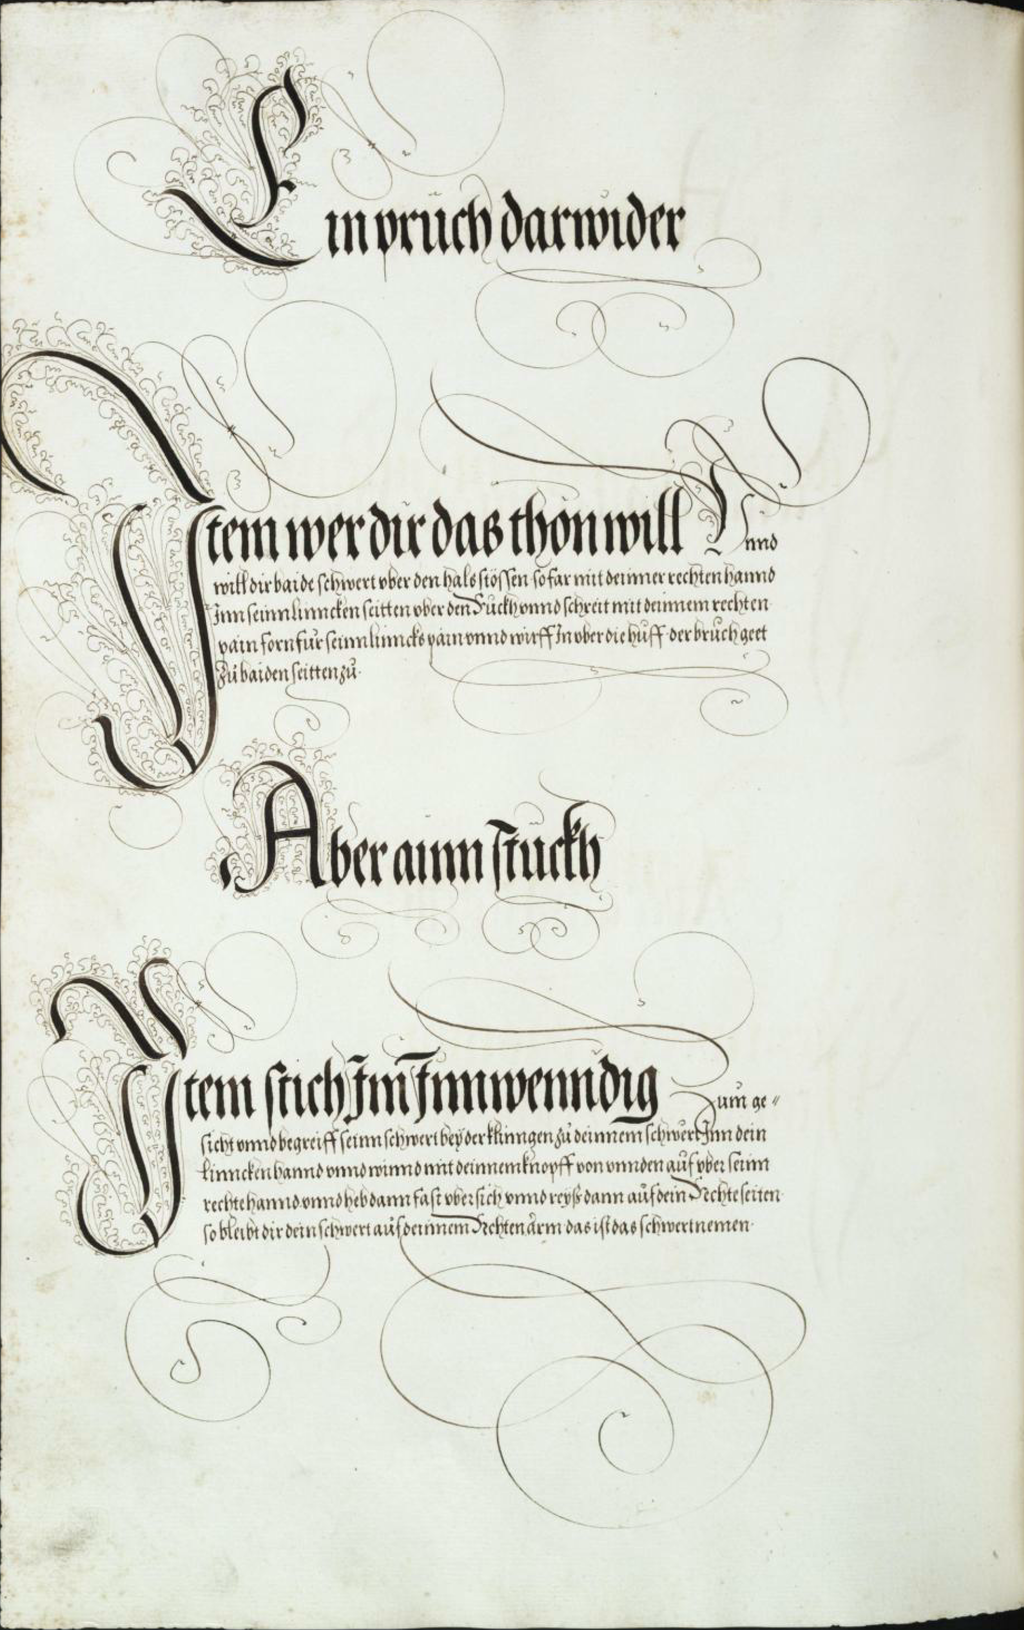 Ein pruch darwider
Item wer dir das thon will Vnnd
will dir baide schwert vber den hals stossen so far mit deinner rechten hannd
Inn seinn linncken seitten vber den Ruckh vnnd schreit mit deinnem rechten
pain forn für seinn linncks pain vnnd wirff In vber die hüff der bruch geet
zü baiden seitten zü.
Aber ainn stuckh
Item stich Im Innwenndig Zum ge=
sicht vnnd begreiff seinn schwert bey der klinngen zü deinnem schwert Inn dein
linncken hannd vnnd winnd mit deinnem knopff von vnnden auf vber seinn
rechte hannd vnnd heb dann fast vbersich vnnd reyß dann auf dein Rechte seiten
so bleibt dir dein schwert auf deinnem Rechten arm das ist das schwert nemen.